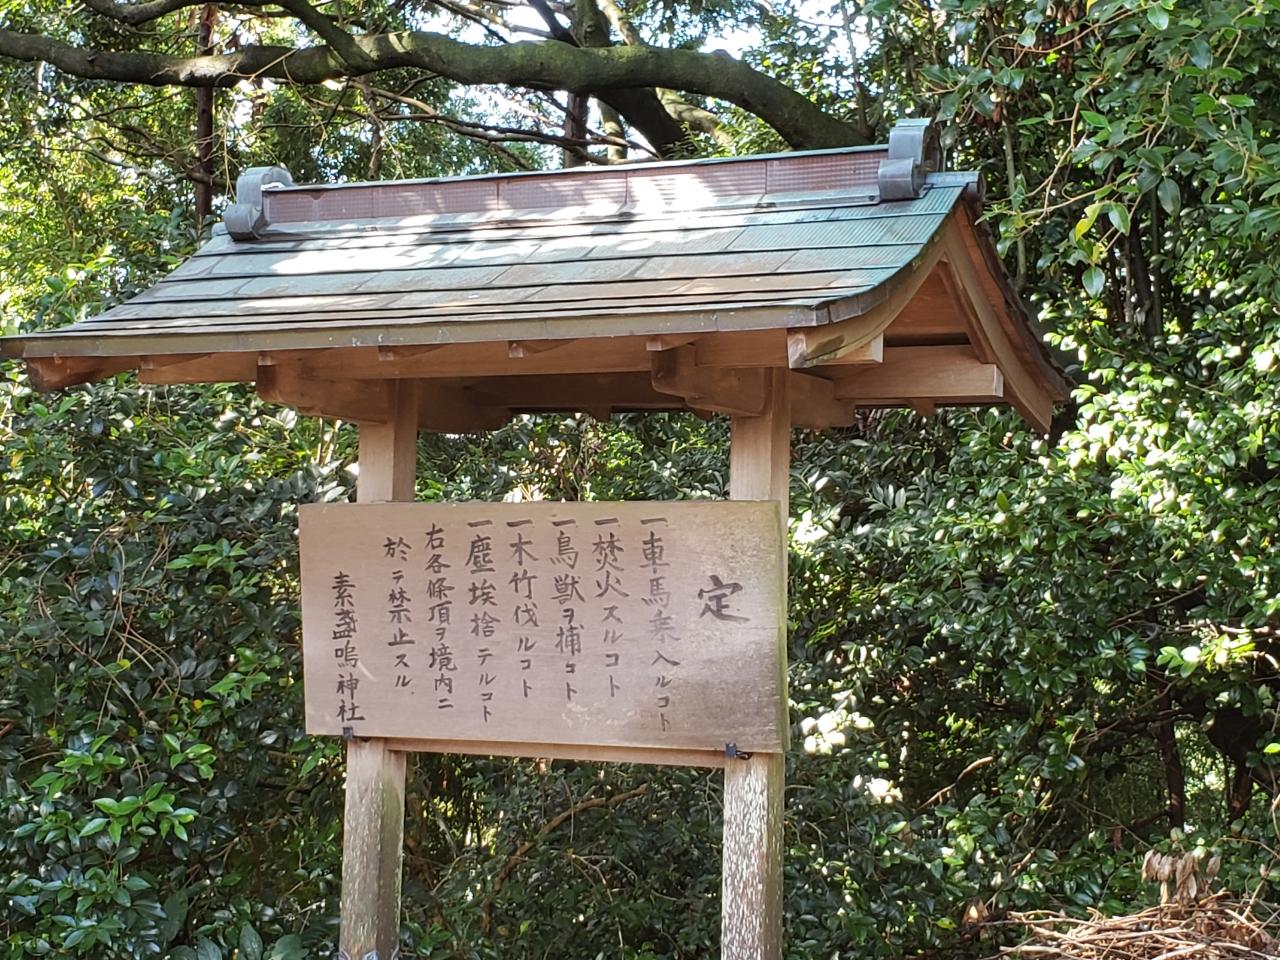 定
一車馬乗入ルコト
一焚火スルコト
一鳥獣ヲ捕コト
一木竹伐ルコト
一塵埃捨テルコト
右各條項ヲ境内ニ
於テ禁示止スル
素盞嗚神社